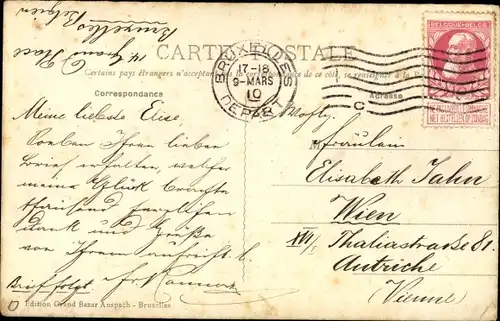 14 Grand Place
Bruxelles
Belgien
CARTE POSTALE
Certains pays étrangers n'acceptent pas de ce côté, se renseigner à la
Correspondance
Adresse
BRUXELLES
17-18
9-MARS
10
DEPART
C
BELGIQUE-BELGIË
NE PAS LIVRER LE DIMANCHE
NIET BESTELLEN OP ZONDAG
Meine liebste Elise.
Soeben Ihren lieben
Brief erhalten, welcher
meine Glück
dank und Grüße
von Ihrem aufricht.
Brief folgt.
Fräulein
Elisabeth Jahn
Wien
XVI/1 Thaliastrasse 81.
Autriche
Vienne
Edition Grand Bazar Anspach - Bruxelles